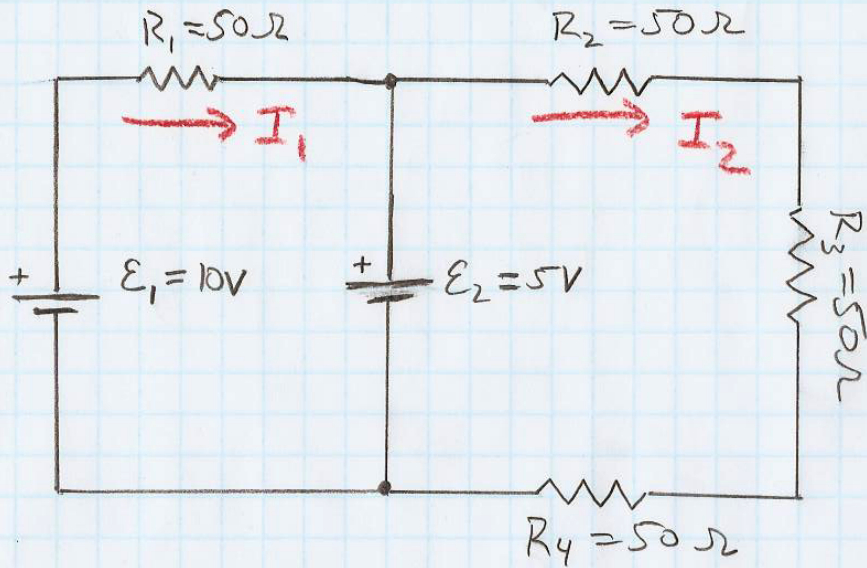 R₁ = 50Ω
R₂ = 50Ω
I₁
I₂
+
ε₁ = 10V
+
ε₂ = 5V
R₃ = 50Ω
R₄ = 50Ω